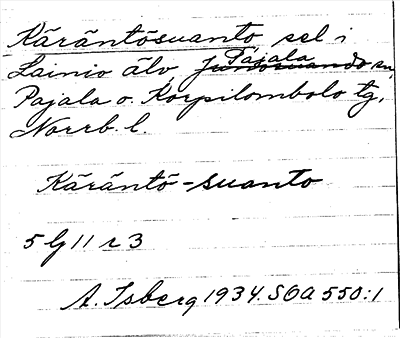 Käräntösuanto sel i
Lainio älv, Pajala sn,
Pajala o. Korpilombolo tg,
Norrb. l.
Käräntö-suanto
5 lj 11 r 3
A. Isberg 1934. SOA 550:1